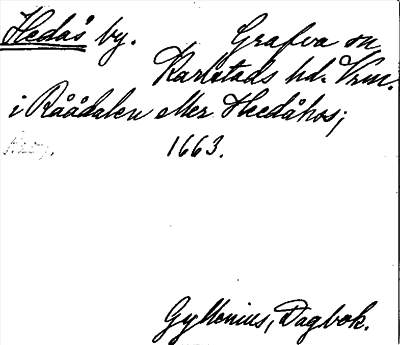 Hedås by. Grafva sn,
Karlstads hd. Vrm.
i Råådalen eller Heedåhos;
1663.
Gyllenius, Dagbok.